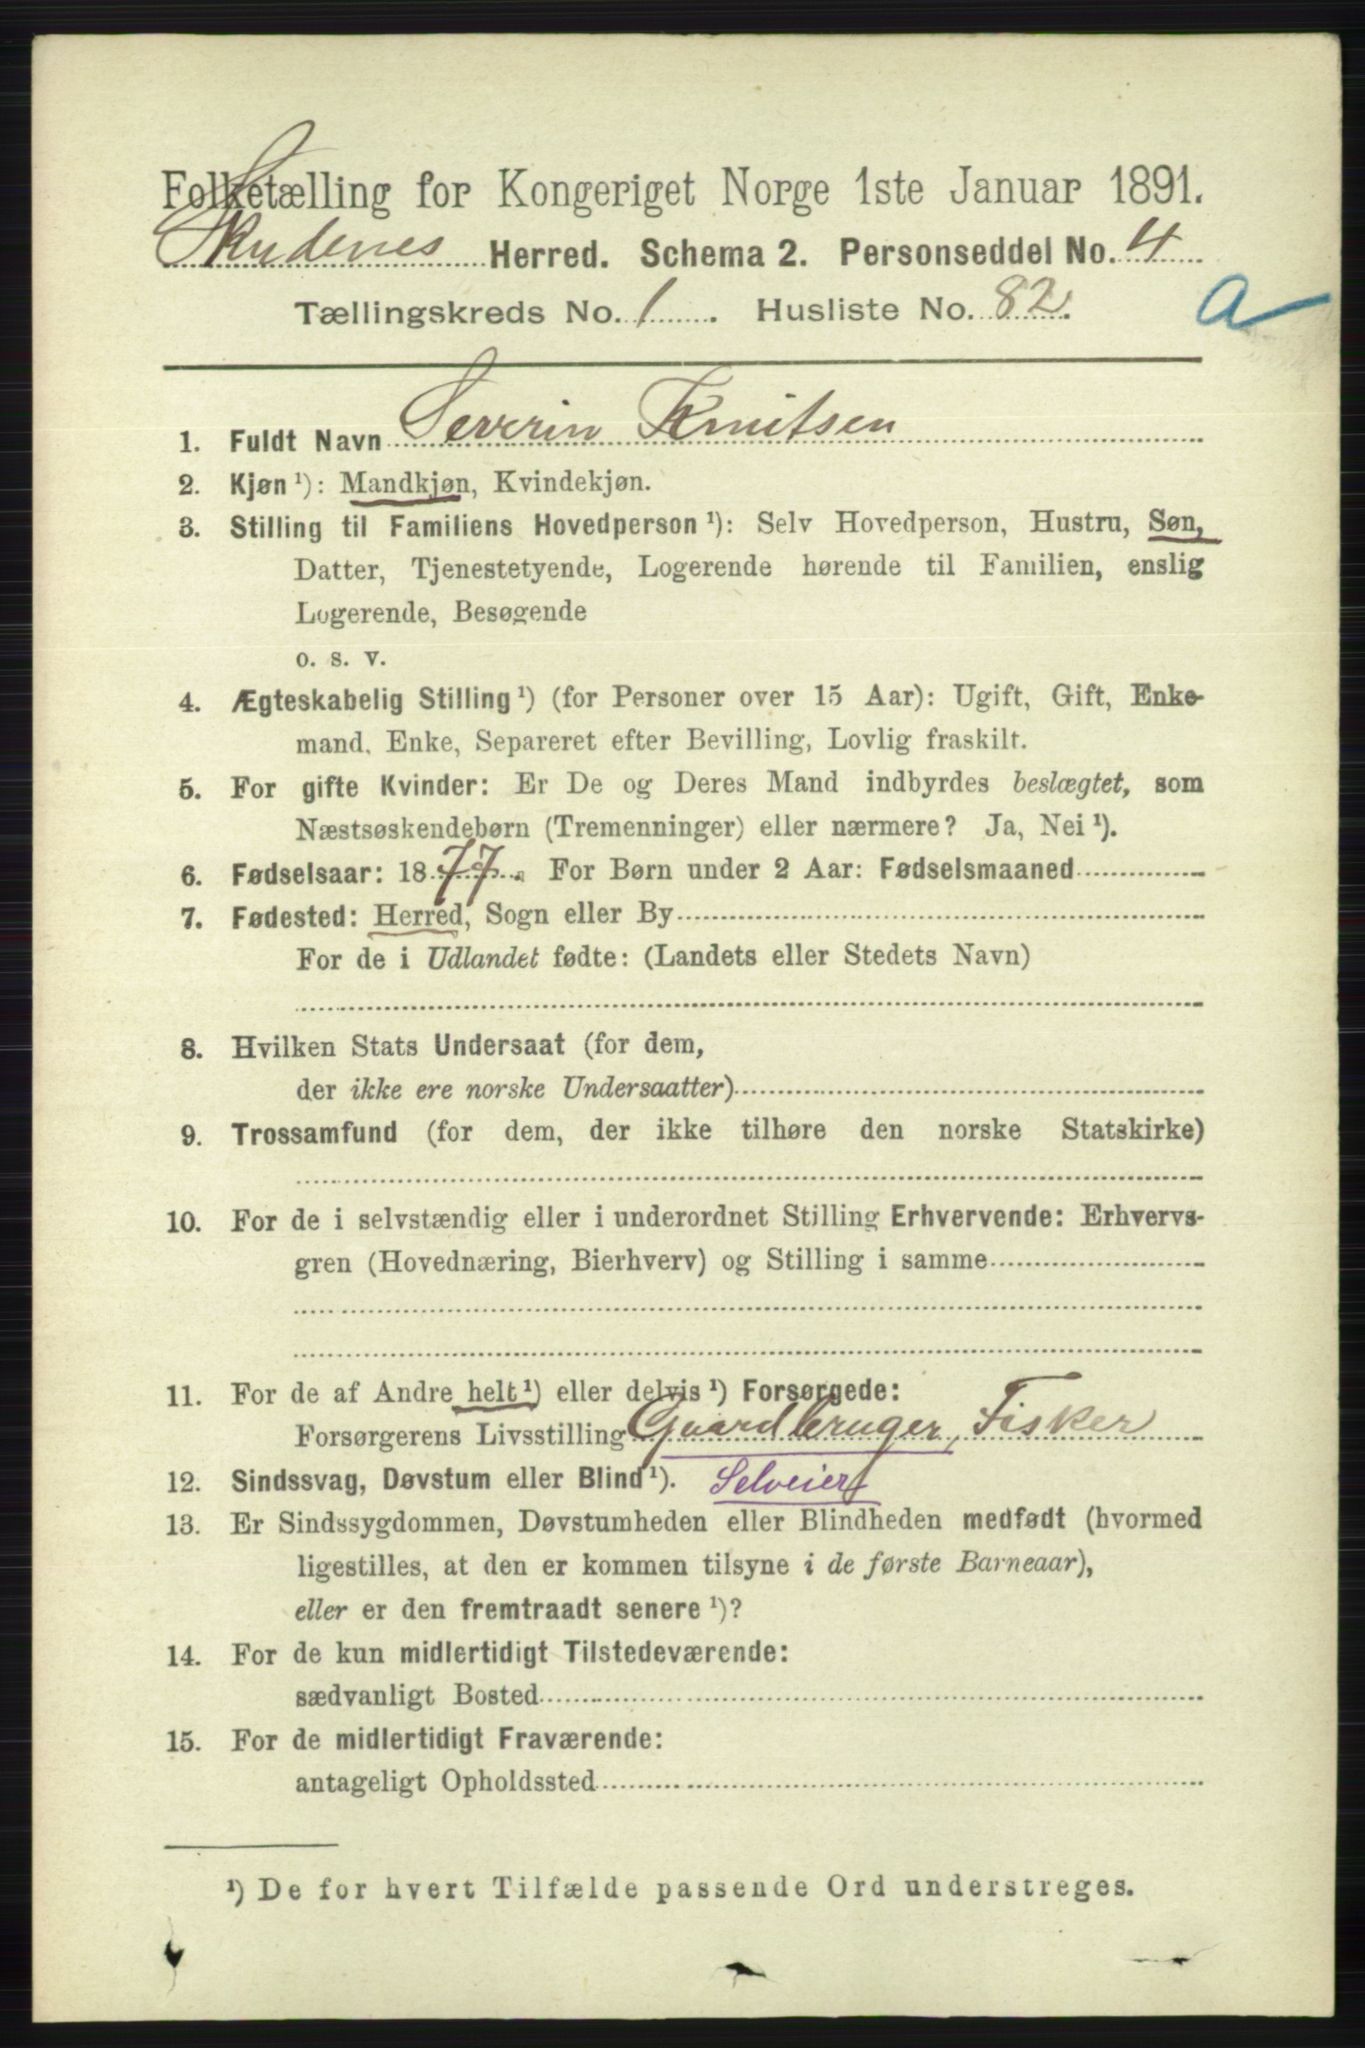 Folketælling for Kongeriget Norge 1ste Januar 1891.
Skudenes Herred. Schema 2. Personseddel No. 4
Tællingskreds No. 1. Husliste No. 82.
a
1. Fuldt Navn Severin Knutsen
2. Kjøn ¹): Mandkjøn, Kvindekjøn.
3. Stilling til Familiens Hovedperson ¹): Selv Hovedperson, Hustru, Søn,
Datter, Tjenestetyende, Logerende hørende til Familien, enslig
Logerende, Besøgende
o. s. v.
4. Ægteskabelig Stilling ¹) (for Personer over 15 Aar): Ugift, Gift, Enke-
mand, Enke, Separeret efter Bevilling, Lovlig fraskilt.
5. For gifte Kvinder: Er De og Deres Mand indbyrdes beslægtet, som
Næstsøskendebørn (Tremenninger) eller nærmere? Ja, Nei ¹).
6. Fødselsaar: 1877. For Børn under 2 Aar: Fødselsmaaned
7. Fødested: Herred, Sogn eller By
For de i Udlandet fødte: (Landets eller Stedets Navn)
8. Hvilken Stats Undersaat (for dem,
der ikke ere norske Undersaatter)
9. Trossamfund (for dem, der ikke tilhøre den norske Statskirke)
10. For de i selvstændig eller i underordnet Stilling Erhvervende: Erhvervs-
gren (Hovednæring, Bierhverv) og Stilling i samme
11. For de af Andre helt ¹) eller delvis ¹) Forsørgede:
Forsørgerens Livsstilling Gaardbruger, Fisker
12. Sindssvag, Døvstum eller Blind ¹). Selveier
13. Er Sindssygdommen, Døvstumheden eller Blindheden medfødt (hvormed
ligestilles, at den er kommen tilsyne i de første Barneaar),
eller er den fremtraadt senere ¹)?
14. For de kun midlertidigt Tilstedeværende:
sædvanligt Bosted
15. For de midlertidigt Fraværende:
antageligt Opholdssted
¹) De for hvert Tilfælde passende Ord understreges.